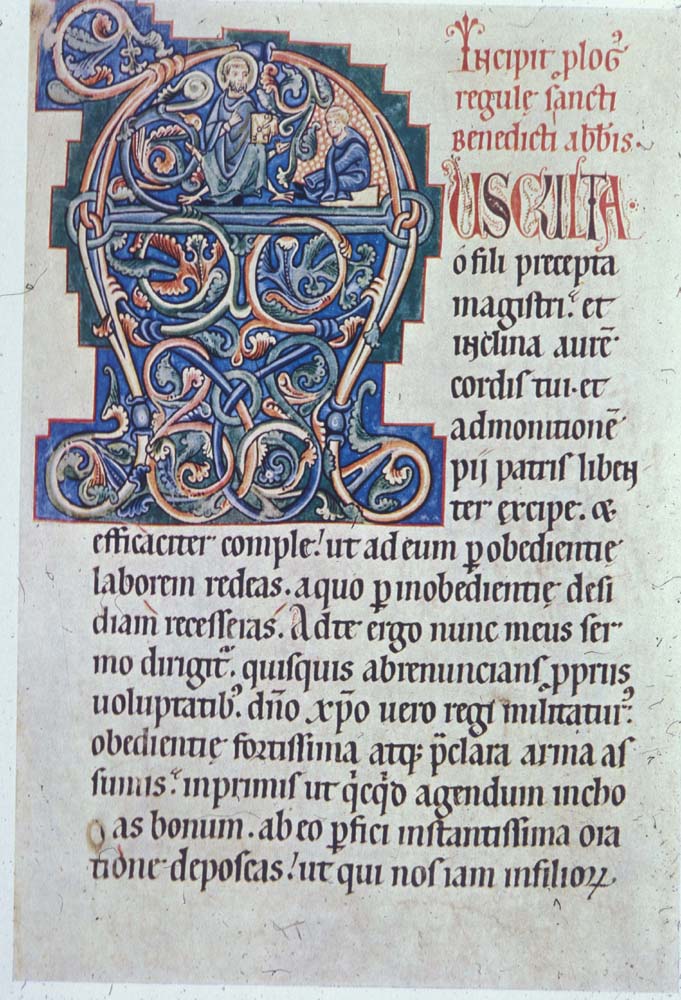 Incipit plog᷒
regulę sancti
Benedicti abbis.
AUSCULTA
o fili precepta
magistri. et
inclina aurē
cordis tui. et
admonitionē
pii patris liben
ter excipe. &
efficaciter comple. ut ad eum ꝑ obedientię
laborem redeas. a quo ꝑ inobedientię desi
diam recesseras. Ad te ergo nunc meus ser
mo dirigit᷒. quisquis abrenuncians ꝓpriis
uoluptatib᷒. dño xp̄o uero regi militatur᷒.
obedientię fortissima atq; p̄clara arma as
sumis. inprimis ut qͥcqͥd agendum incho
as bonum. ab eo ꝑfici instantissima ora
tione deposcas. ut qui nos iam in filioꝝ